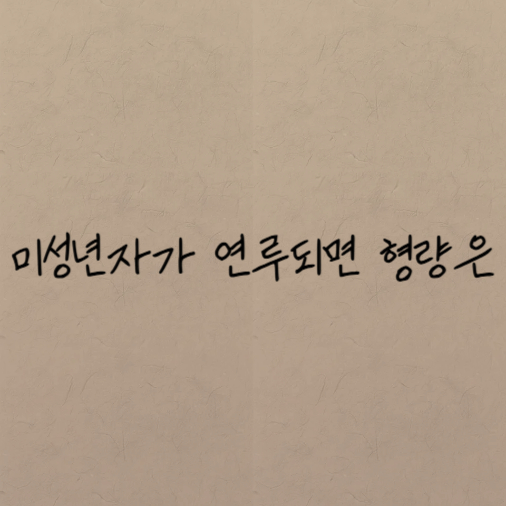 미성년자가 연루되면 형량은